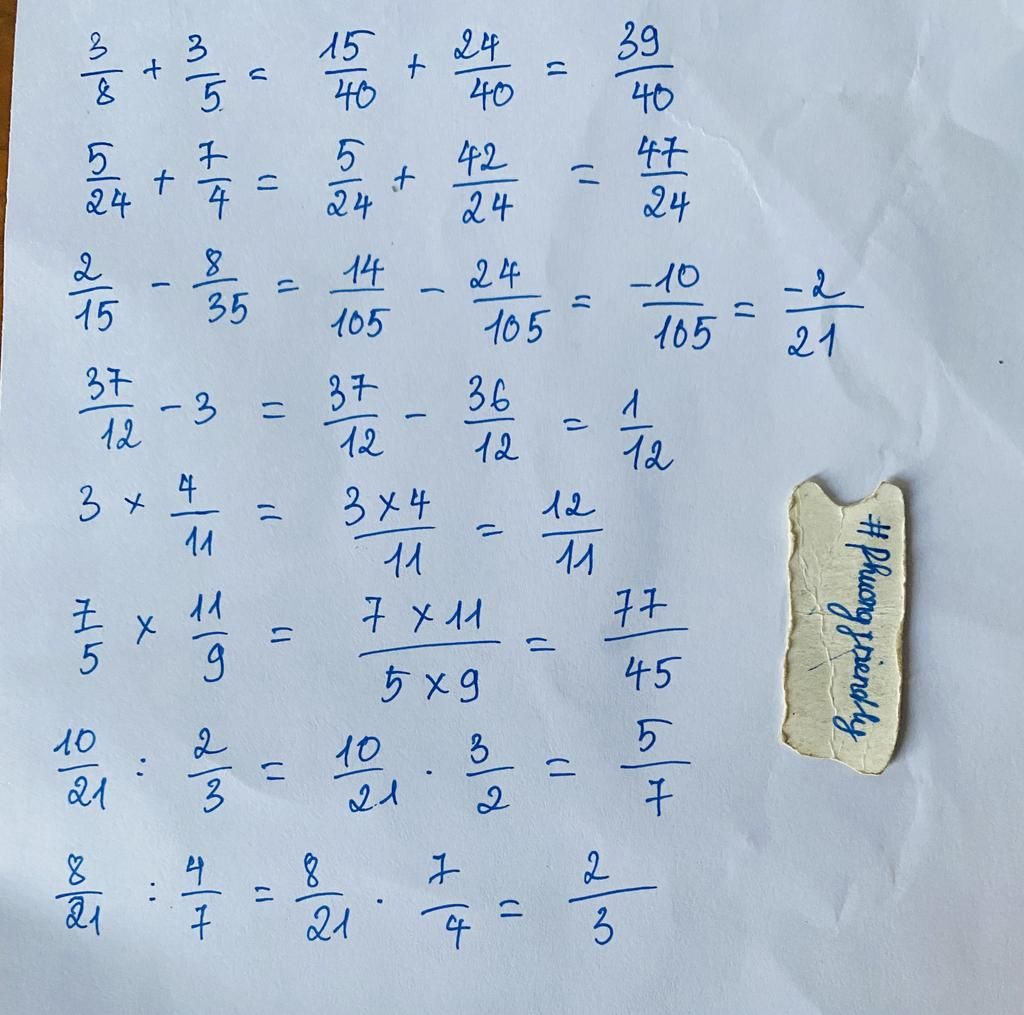 3/8 + 3/5 = 15/40 + 24/40 = 39/40
5/24 + 7/4 = 5/24 + 42/24 = 47/24
2/15 - 8/35 = 14/105 - 24/105 = -10/105 = -2/21
37/12 - 3 = 37/12 - 36/12 = 1/12
3 × 4/11 = 3 × 4/11 = 12/11
7/5 × 11/9 = 7 × 11/5 × 9 = 77/45
10/21 : 2/3 = 10/21 . 3/2 = 5/7
8/21 : 4/7 = 8/21 . 7/4 = 2/3
#phuongfriendly